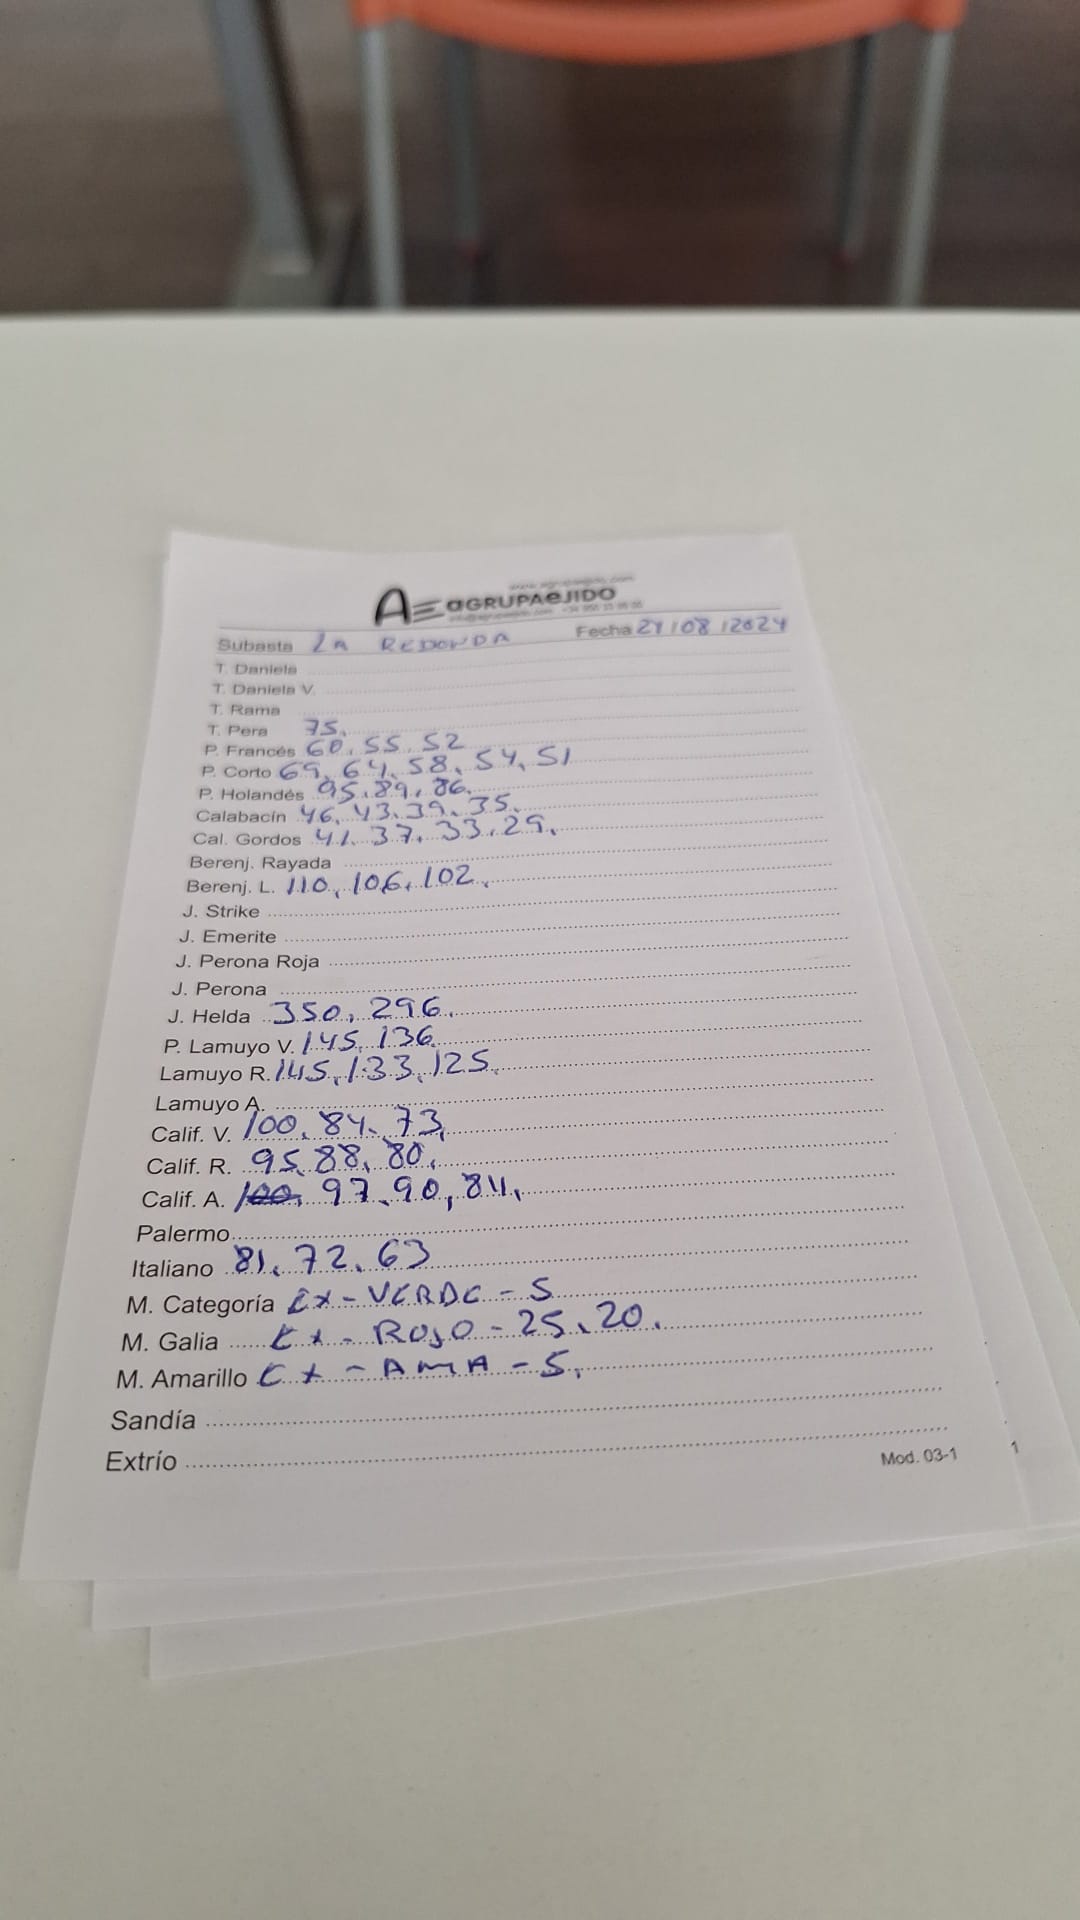 AE aGRUPAeJIDO
Subasta LA REDONDA Fecha 24/08/2024
T. Daniela
T. Daniela V.
T. Rama
T. Pera 75,
P. Francés 60, 55, 52
P. Corto 69, 64, 58, 54, 51
P. Holandés 95, 89, 86,
Calabacín 46, 43, 39, 35,
Cal. Gordos 41, 37, 33, 29,
Berenj. Rayada
Berenj. L. 110, 106, 102,
J. Strike
J. Emerite
J. Perona Roja
J. Perona
J. Helda 350, 296,
P. Lamuyo V. 145, 136,
Lamuyo R. 145, 133, 125,
Lamuyo A.
Calif. V. 100, 84, 73,
Calif. R. 95, 88, 80,
Calif. A. 100, 97, 90, 84,
Palermo
Italiano 81, 72, 63
M. Categoría EX - VERDE - 5
M. Galia EX - ROJO - 25, 20,
M. Amarillo EX - AMA - 5,
Sandía
Extrío
Mod. 03-1
1